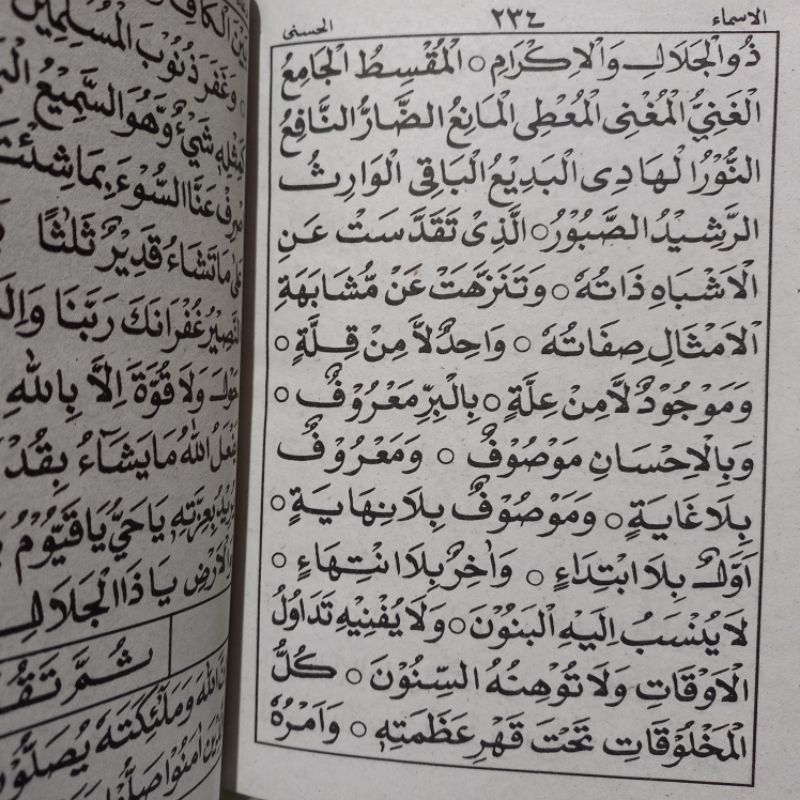 الاسماء ٢٣٤ الحسنى
ذُو الْجَلَالِ وَالْاِكْرَامِ ○ الْمُقْسِطُ الْجَامِعُ
الْغَنِيُّ الْمُغْنِى الْمُعْطِى الْمَانِعُ الضَّارُّ النَّافِعُ
النُّوْرُ الْهَادِى الْبَدِيْعُ الْبَاقِى الْوَارِثُ
الرَّشِيْدُ الصَّبُوْرُ ○ الَّذِىْ تَقَدَّسَتْ عَنِ
الْاَشْبَاهِ ذَاتُهُ ○ وَتَنَزَّهَتْ عَنْ مُّشَابَهَةِ
الْاَمْثَالِ صِفَاتُهُ ○ وَاحِدٌ لَّا مِنْ قِلَّةٍ ○
وَمَوْجُوْدٌ لَّا مِنْ عِلَّةٍ ○ بِالْبِرِّ مَعْرُوْفٌ ○
وَبِالْاِحْسَانِ مَوْصُوْفٌ ○ وَمَعْرُوْفٌ
بِلَا غَايَةٍ ○ وَمَوْصُوْفٌ بِلَا نِهَايَةٍ ○
اَوَّلٌ بِلَا ابْتِدَاءٍ ○ وَاٰخِرٌ بِلَا انْتِهَاءٍ ○
لَا يُنْسَبُ اِلَيْهِ الْبَنُوْنَ ○ وَلَا يُفْنِيْهِ تَدَاوُلُ
الْاَوْقَاتِ وَلَا تُوْهِنُهُ السِّنُوْنَ ○ كُلُّ
الْمَخْلُوْقَاتِ تَحْتَ قَهْرِ عَظَمَتِهٖ ○ وَاَمْرُهٗ
وَغَفَرَ ذُنُوْبَ الْمُسْلِمِيْنَ
كَمِثْلِهٖ شَيْءٌ وَّهُوَ السَّمِيْعُ
عَنَّا السُّوْءَ بِمَا شِئْتَ
مَا تَشَاءُ قَدِيْرٌ ثَلٰثًا
غُفْرَانَكَ رَبَّنَا وَاِلَ
وَلَا قُوَّةَ اِلَّا بِاللهِ
اللهُ مَا يَشَاءُ بِقُدْ
بِعِزَّتِهٖ يَا حَيُّ يَا قَيُّوْمُ
وَالْاَرْضِ يَا ذَا الْجَلَالِ
ثُمَّ تَقُ
اللهَ وَمَلٰٓئِكَتَهٗ يُصَلُّوْ
اٰمَنُوْا صَلُّ